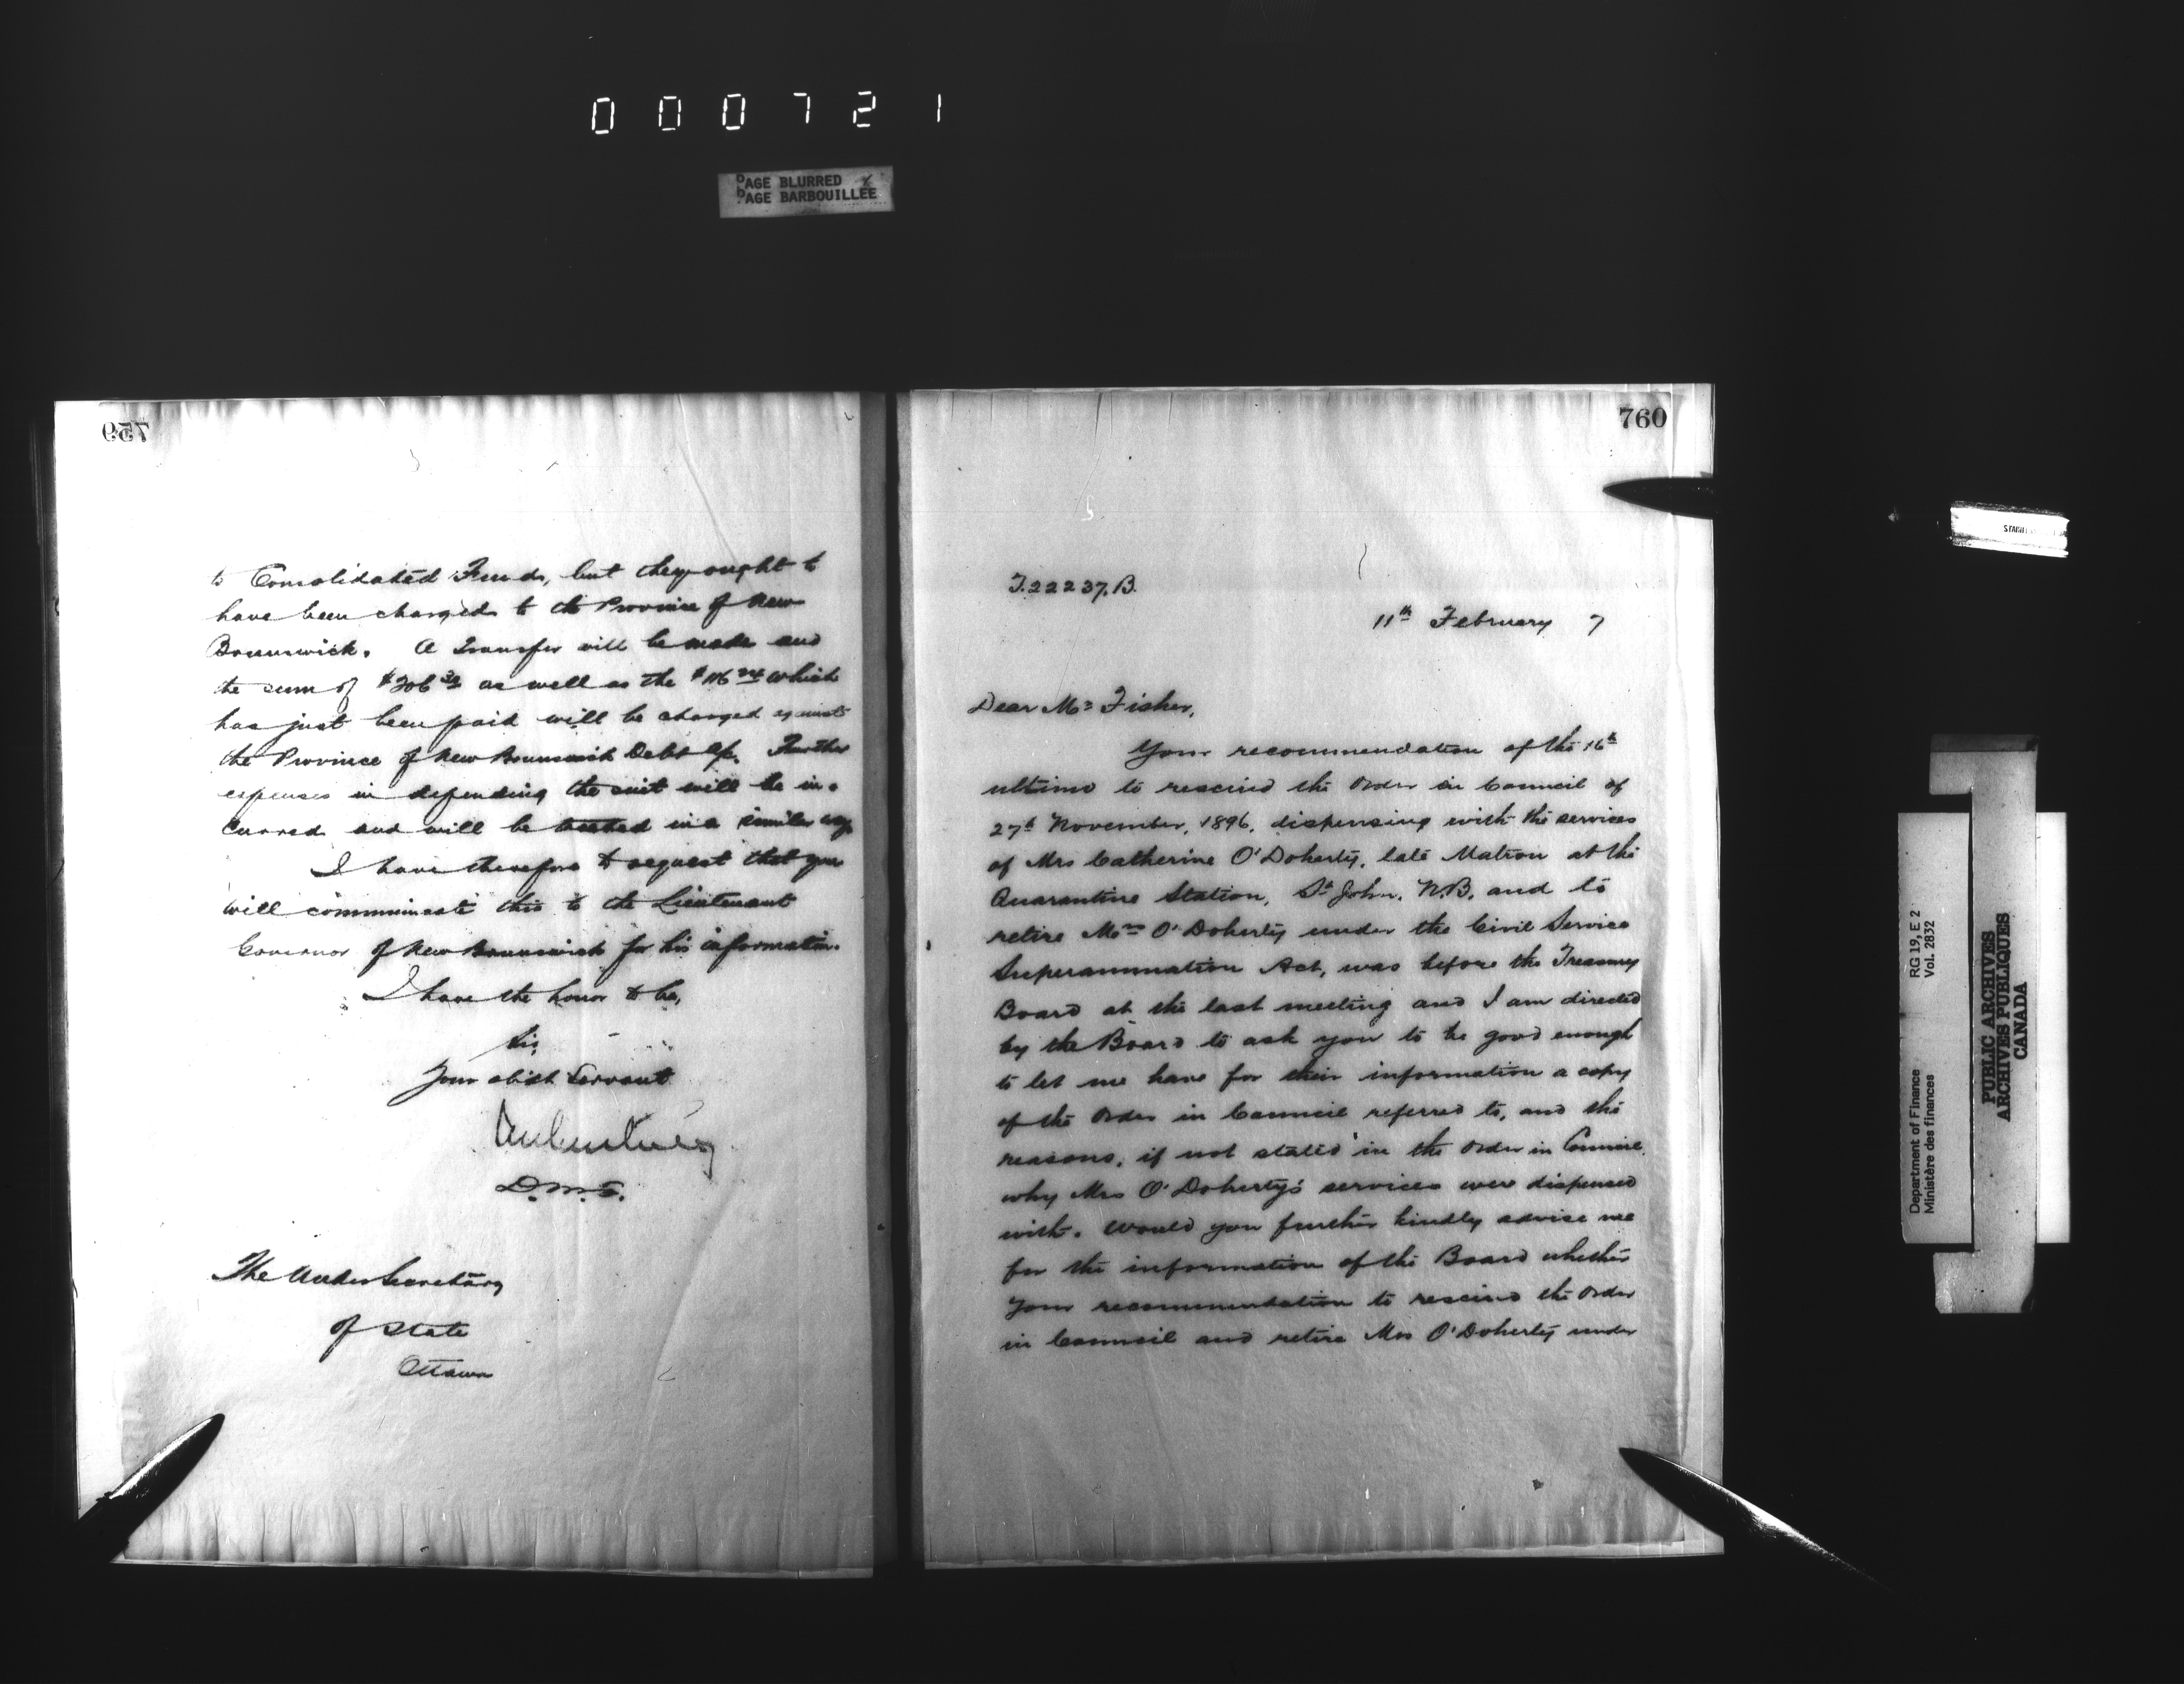 000721
PAGE BLURRED
PAGE BARBOUILLÉE
759
to Consolidated Funds, but they ought to
have been charged to the Province of New
Brunswick. A Transfer will be made and
the sum of as well as the which
has just been paid will be charged against
the Province of New Brunswick Debt a/c. Further
expenses in defending the suit will be in-
curred and will be treated in a similar way
I have therefore to request that you
will communicate this to the Lieutenant
Governor of New Brunswick for his information.
I have the honor to be,
Sir,
Your obdt Servant
D.M.F.
The Under Secretary
of State
Ottawa
760
T.22237.B.
11th February 7
Dear Mr Fisher,
Your recommendation of the 16th
ultimo to rescind the Order in Council of
27th November, 1896, dispensing with the services
of Mrs Catherine O'Doherty, late Matron at the
Quarantine Station, St John, N.B. and to
retire Mrs O'Doherty under the Civil Service
Superannuation Act, was before the Treasury
Board at the last meeting and I am directed
by the Board to ask you to be good enough
to let me have for their information a copy
of the Order in Council referred to, and the
reasons, if not stated in the Order in Council,
why Mrs O'Doherty's services were dispensed
with. Would you further kindly advise me
for the information of the Board whether
your recommendation to rescind the Order
in Council and retire Mrs O'Doherty under
Department of Finance RG 19, E 2
Ministère des finances Vol. 2832
PUBLIC ARCHIVES
ARCHIVES PUBLIQUES
CANADA